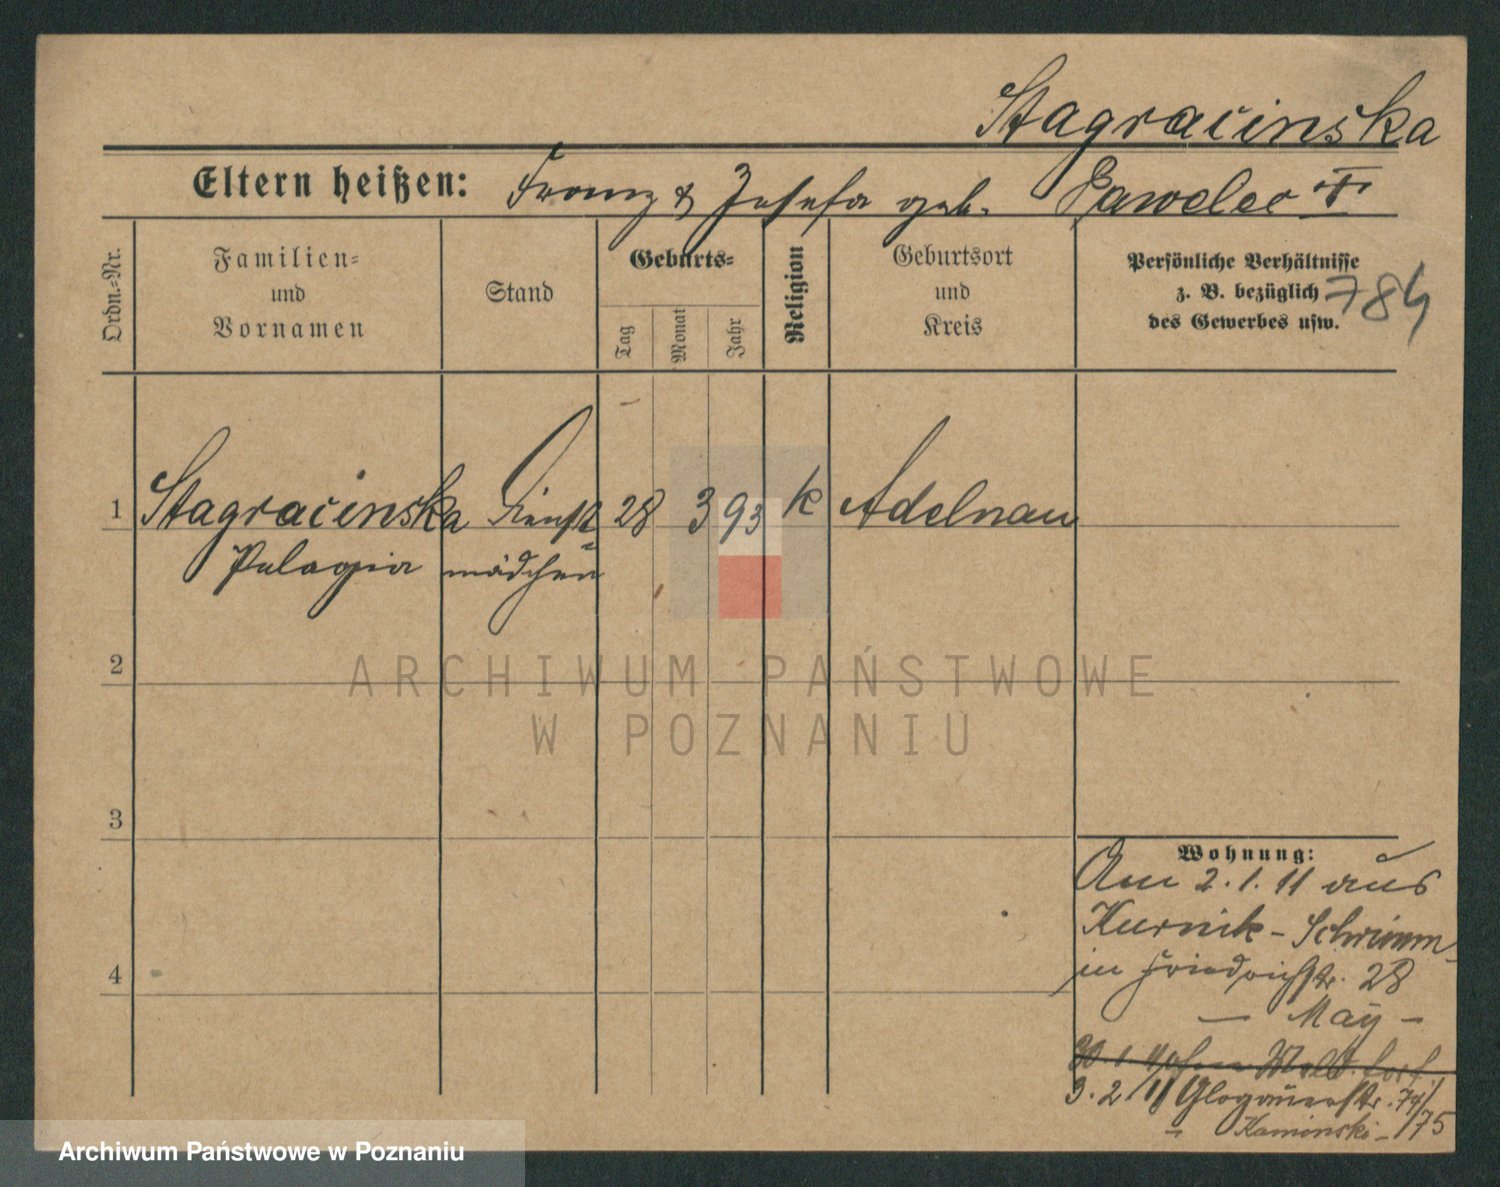 Stagracinska
Eltern heißen: Franz & Josefa geb. Pawelec
Ordn.=Nr.
Familien=
und
Vornamen
Stand
Geburts=
Tag
Monat
Jahr
Religion
Geburtsort
und
Kreis
Persönliche Verhältnisse
z. B. bezüglich
des Gewerbes usw.
784
1 Stagracinska Dienst= 28 3 93 k Adelnau
Pelagia mädchen
2
ARCHIWUM PAŃSTWOWE
W POZNANIU
3
Wohnung:
Am 2.1.11 aus
Kurnik - Schrimm
in Friedrichstr. 28
4
— May —
3.2.11 Glogauerstr. 74/75
— Kaminski —
Archiwum Państwowe w Poznaniu